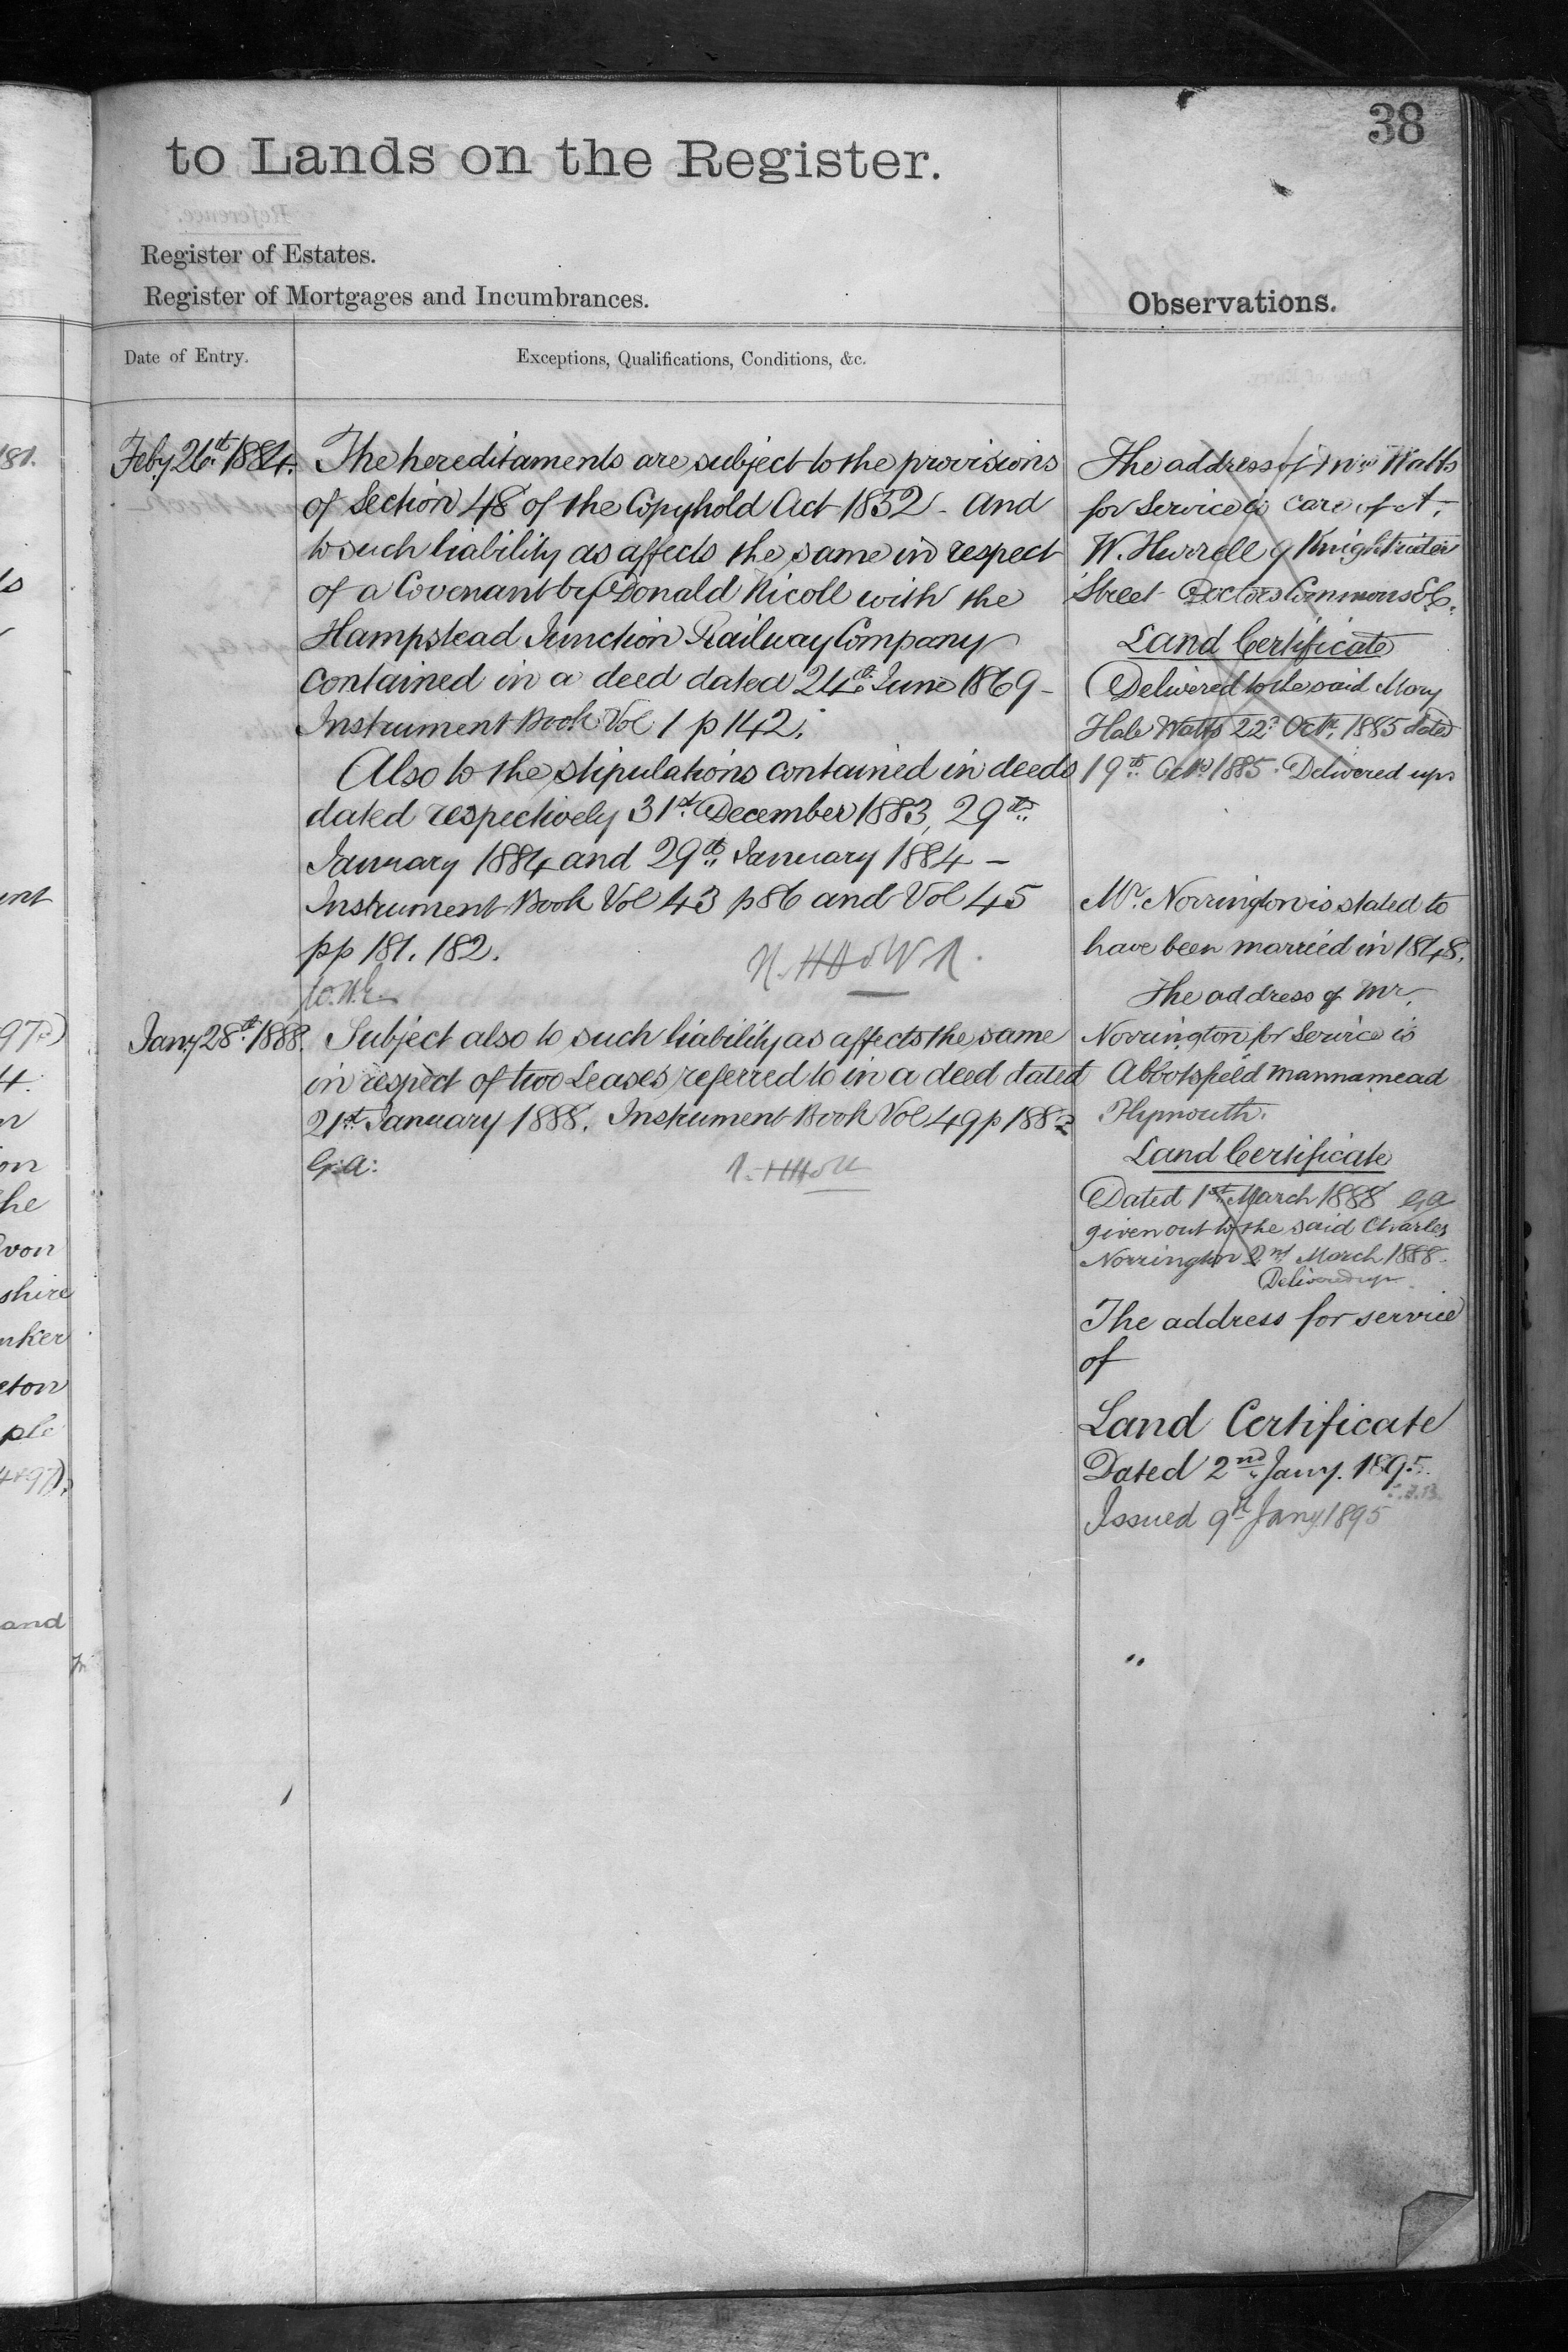 38
to Lands on the Register.
Register of Estates.
Register of Mortgages and Incumbrances.
Observations.
Date of Entry.
Exceptions, Qualifications, Conditions, &c.
Feby 26th 1884.
The hereditaments are subject to the provisions
of Section 48 of the Copyhold Act 1852 - And
to such liability as affects the same in respect
of a Covenant by Donald Nicoll with the
Hampstead Junction Railway Company
contained in a deed dated 24th June 1869 -
Instrument Book Vol 1 p 142.
Also to the stipulations contained in deeds
dated respectively 31st December 1883, 29th
January 1884 and 29th January 1884 -
Instrument Book Vol 43 p 86 and Vol 45
pp 181. 182.
Jany 28th 1888.
Subject also to such liability as affects the same
in respect of two Leases referred to in a deed dated
21st January 1888. Instrument Book Vol 49 p 188
G.A:
The address of Mrs Watts
for Service is care of A.
W. Hurrell 9 Knightrider
Street Doctors Commons E.C.
Land Certificate
Delivered to the said Mary
Hale Watts 22d Octr 1885 dated
19th Octr 1885. Delivered up
Mr. Norrington is stated to
have been married in 1848.
The address of Mr.
Norrington for Service is
Abbotsfield Mannamead
Plymouth.
Land Certificate
Dated 1st March 1888 GA
given out to the said Charles
Norrington 2nd March 1888.
Delivered up
The address for service
of
Land Certificate
Dated 2nd Jany. 1895.
Issued 9th Jany 1895
181.
ts
ent
97)
4.
n
on
he
von
shire
nker
eton
ple
497),
and